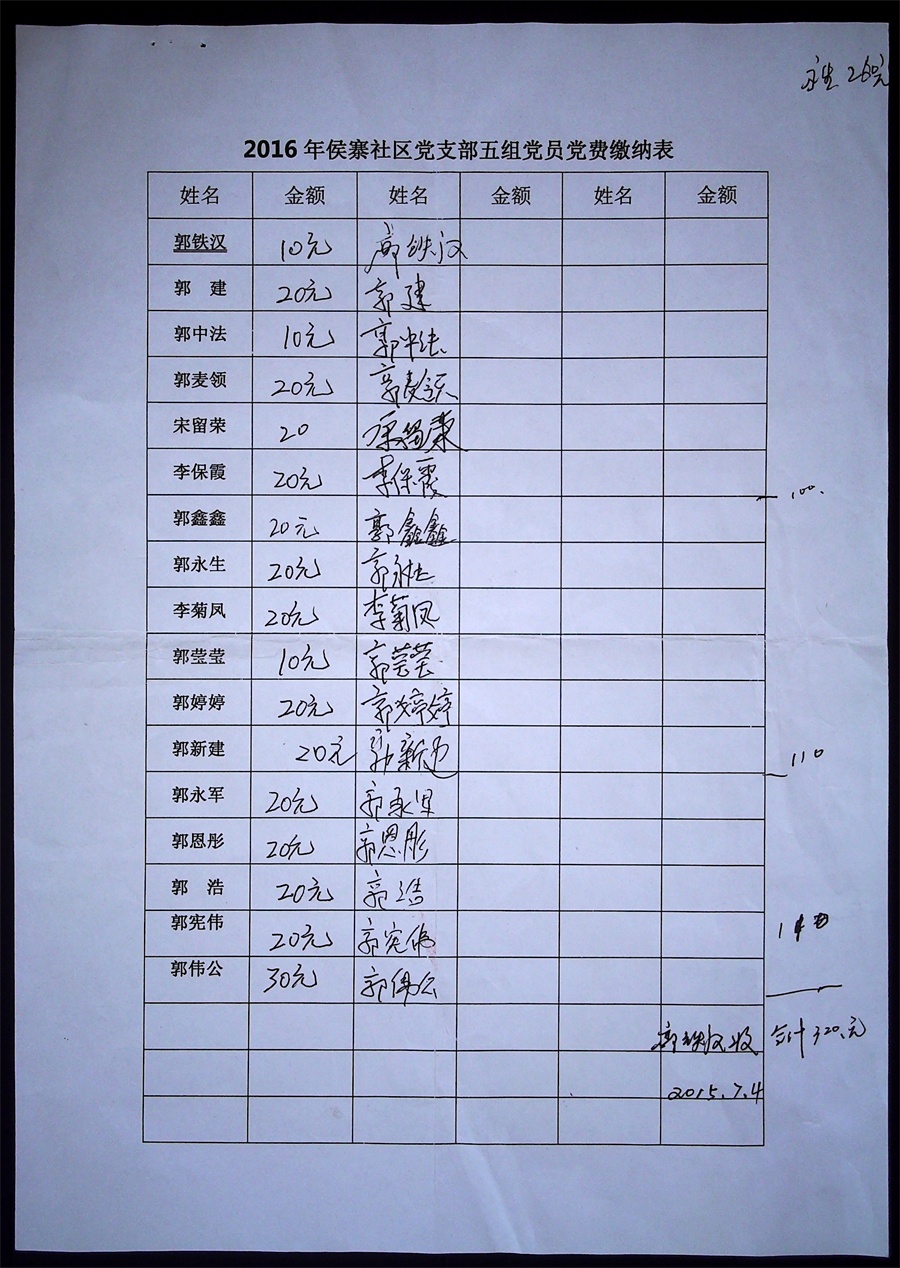 永生 260元
2016年侯寨社区党支部五组党员党费缴纳表
姓名 金额 姓名 金额 姓名 金额
郭铁汉 10元 郭铁汉
郭 建 20元 郭建
郭中法 10元 郭中法
郭麦领 20元 郭麦领
宋留荣 20 宋留荣
李保霞 20元 李保霞
100.
郭鑫鑫 20元 郭鑫鑫
郭永生 20元 郭永生
李菊凤 20元 李菊凤
郭莹莹 10元 郭莹莹
郭婷婷 20元 郭婷婷
郭新建 20元 郭新建
110
郭永军 20元 郭永军
郭恩彤 20元 郭恩彤
郭 浩 20元 郭浩
郭宪伟 20元 郭宪伟
郭伟公 30元 郭伟公
郭铁汉收 合计320元
2015.7.4